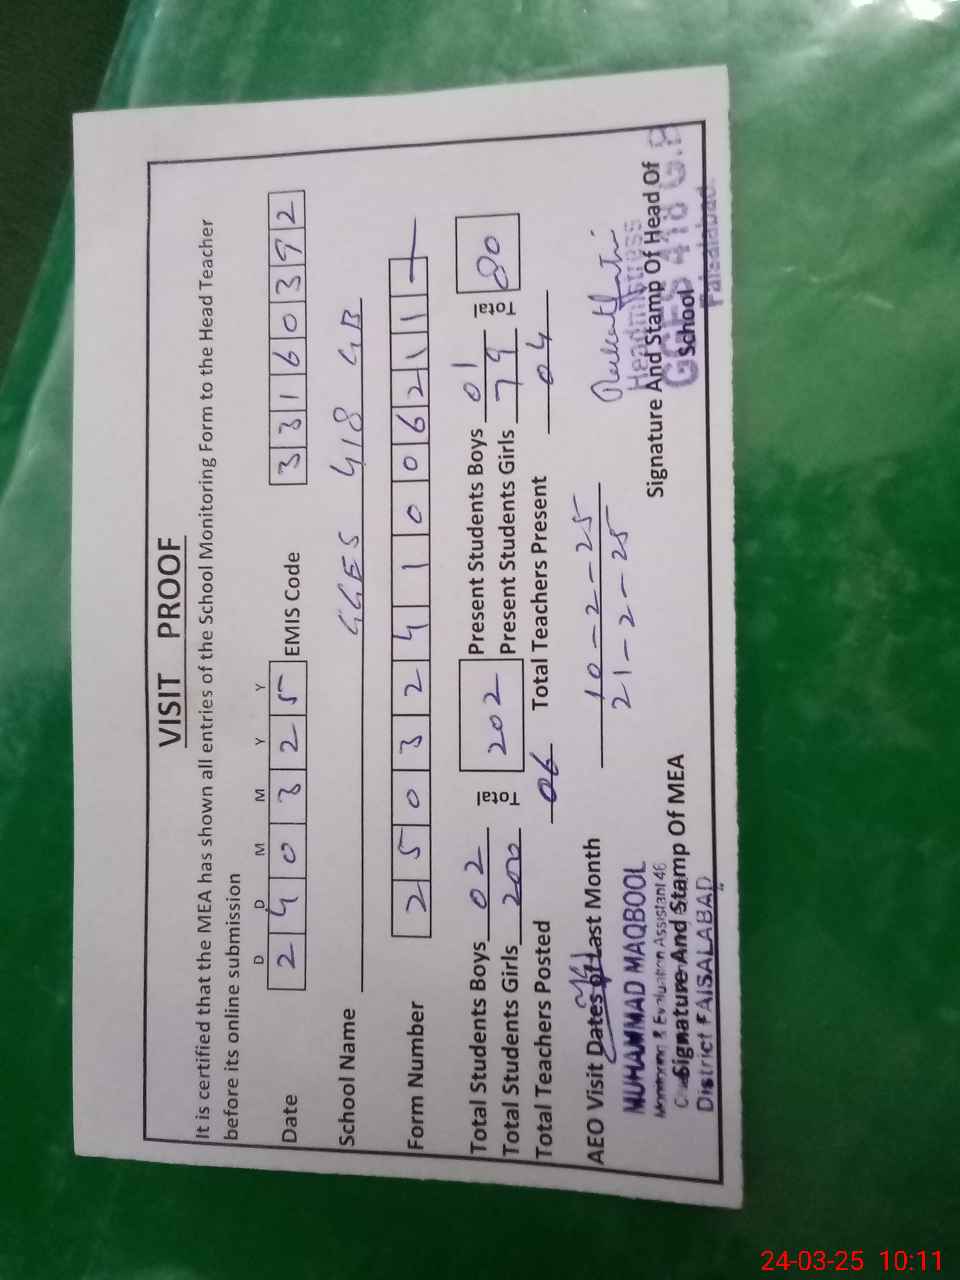 VISIT PROOF
It is certified that the MEA has shown all entries of the School Monitoring Form to the Head Teacher
before its online submission
D D M M Y Y
Date 2 4 0 3 2 5 EMIS Code 3 3 1 6 0 3 9 2
School Name GGES 418 GB
Form Number 2 5 0 3 2 4 1 0 0 6 2 1 1
Total Students Boys 02 Total 202 Present Students Boys 01 Total 80
Total Students Girls 200 Present Students Girls 79
Total Teachers Posted 06 Total Teachers Present 04
AEO Visit Dates of Last Month 10-2-25
21-2-25
MUHAMMAD MAQBOOL
Monitoring & Evaluation Assistant 46
Signature And Stamp Of MEA
District FAISALABAD
Headmistress
Signature And Stamp Of Head Of
GGES 418 G.B
School
Faisalabad.
24-03-25 10:11